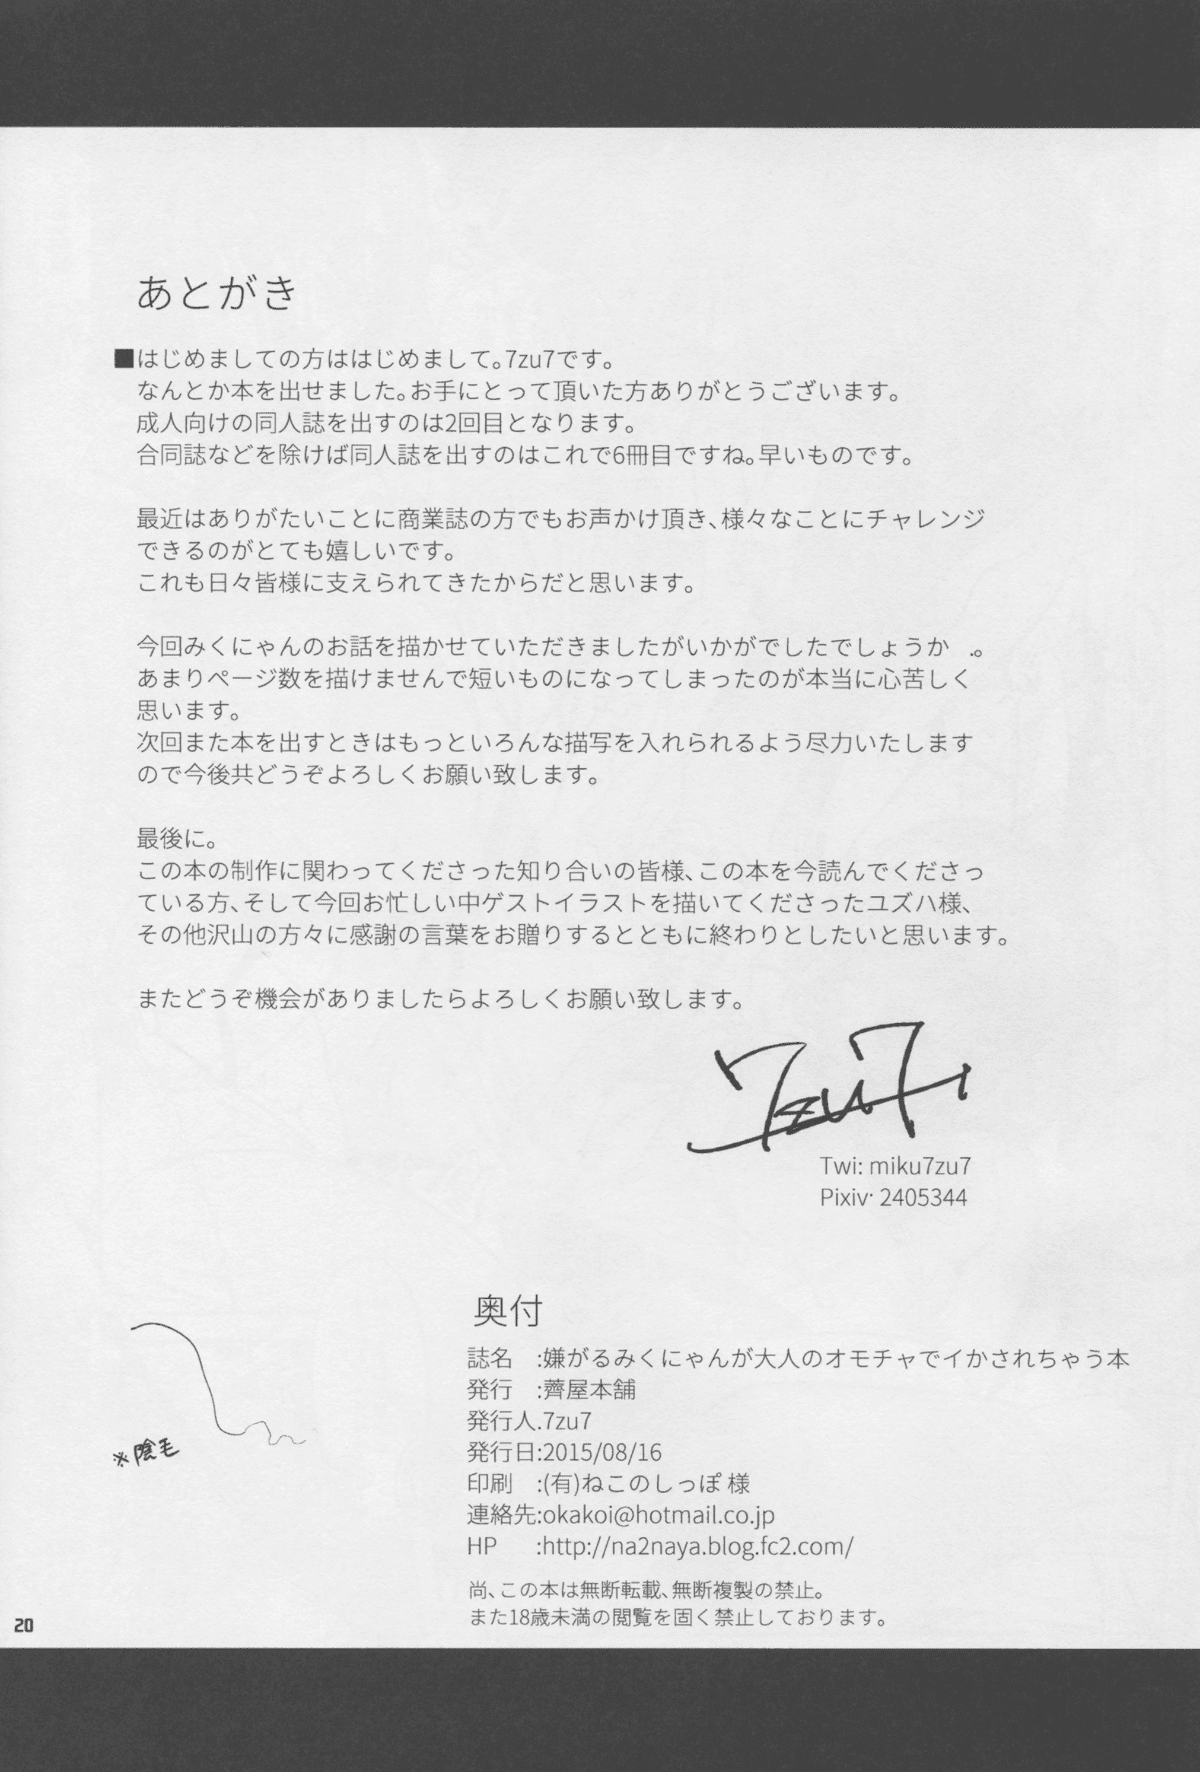 あとがき
■はじめましての方ははじめまして。7zu7です。
なんとか本を出せました。お手にとって頂いた方ありがとうございます。
成人向けの同人誌を出すのは2回目となります。
合同誌などを除けば同人誌を出すのはこれで6冊目ですね。早いものです。
最近はありがたいことに商業誌の方でもお声かけ頂き、様々なことにチャレンジ
できるのがとても嬉しいです。
これも日々皆様に支えられてきたからだと思います。
今回みくにゃんのお話を描かせていただきましたがいかがでしたでしょうか .。
あまりページ数を描けませんで短いものになってしまったのが本当に心苦しく
思います。
次回また本を出すときはもっといろんな描写を入れられるよう尽力いたします
ので今後共どうぞよろしくお願い致します。
最後に。
この本の制作に関わってくださった知り合いの皆様、この本を今読んでくださっ
ている方、そして今回お忙しい中ゲストイラストを描いてくださったユズハ様、
その他沢山の方々に感謝の言葉をお贈りするとともに終わりとしたいと思います。
またどうぞ機会がありましたらよろしくお願い致します。
7zu7
Twi: miku7zu7
Pixiv· 2405344
奥付
誌名 :嫌がるみくにゃんが大人のオモチャでイかされちゃう本
発行 :薺屋本舗
発行人.7zu7
発行日:2015/08/16
印刷 :(有)ねこのしっぽ 様
連絡先:okakoi@hotmail.co.jp
HP :http://na2naya.blog.fc2.com/
尚、この本は無断転載、無断複製の禁止。
また18歳未満の閲覧を固く禁止しております。
※陰毛
20